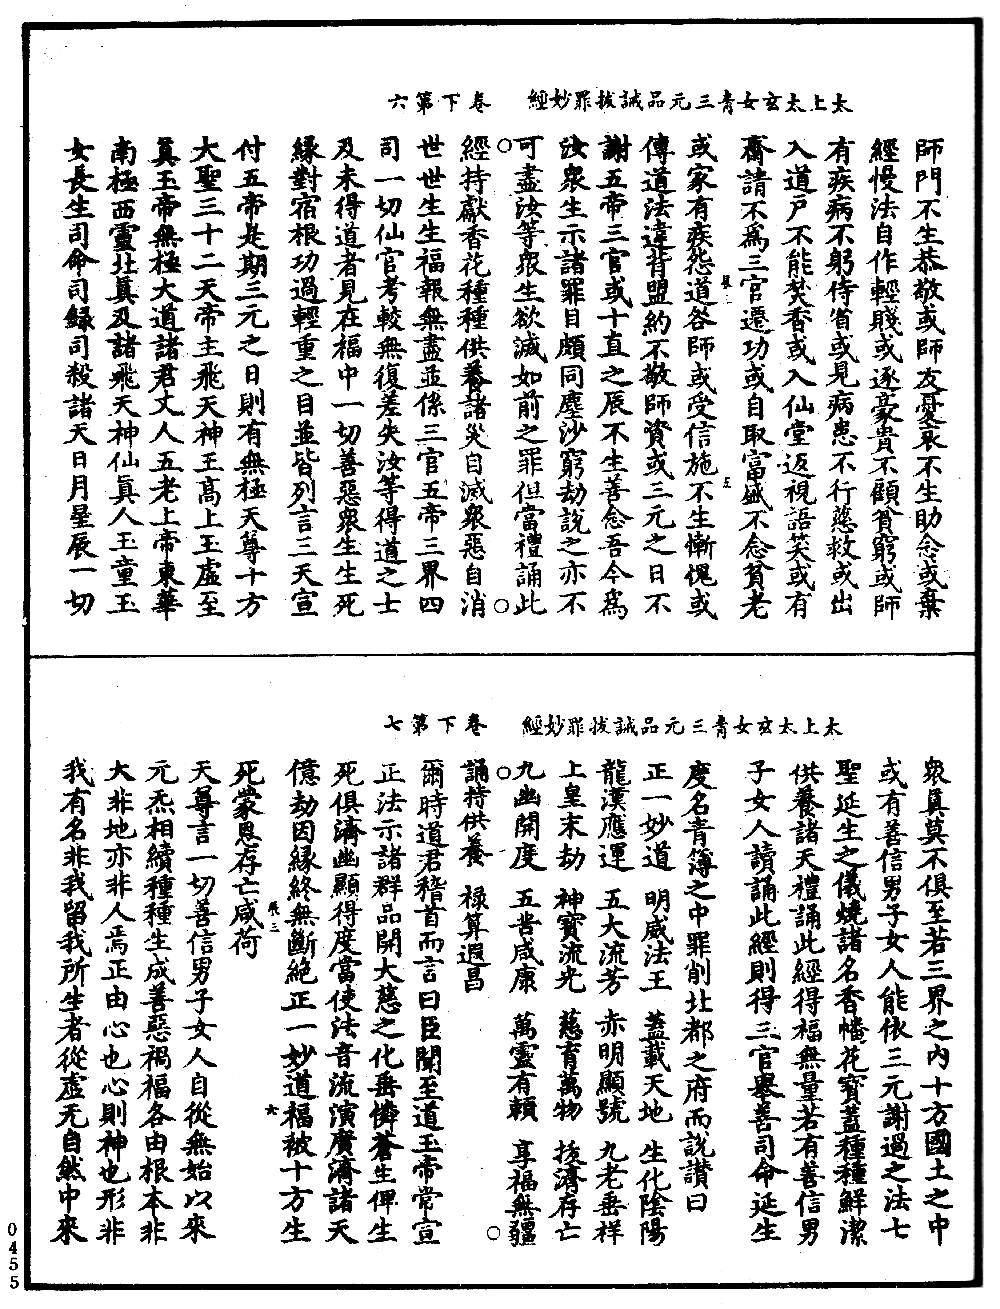 太上太玄女青三元品誡拔罪妙經　卷下第六
師門不生恭敬或師友憂哀不生助念或棄
經慢法自作輕賤或逐豪貴不顧貧窮或師
有疾病不躬侍省或見病患不行慈救或出
入道戸不能焚香或入仙堂返視語笑或有
齋請不爲三官遷功或自取富盛不念貧老
或家有疾怨道咎師或受信施不生慚愧或
傳道法違背盟約不敬師資或三元之日不
謝五帝三官或十直之辰不生善念吾今爲
汝衆生示諸罪目頗同塵沙窮劫說之亦不
可盡汝等衆生欲滅如前之罪但當禮誦此
經持獻香花種種供養諸災自滅衆惡自消
世世生生福報無盡並係三官五帝三界四
司一切仙官考較無復差失汝等得道之士
及未得道者見在福中一切善惡衆生生死
縁對宿根功過輕重之目並皆列言三天宣
付五帝是期三元之日則有無極天尊十方
大聖三十二天帝主飛天神王高上玉虛至
真玉帝無極大道諸君丈人五老上帝東華
南極西靈北真及諸飛天神仙真人玉童玉
女長生司命司録司殺諸天日月星辰一切
五
太上太玄女青三元品誡拔罪妙經　卷下第七
衆真莫不俱至若三界之内十方國土之中
或有善信男子女人能依三元謝過之法七
聖延生之儀燒諸名香幡花寳蓋種種鮮潔
供養諸天禮誦此經得福無量若有善信男
子女人讀誦此經則得三官舉善司命延生
度名青簿之中罪削北都之府而說讃曰
正一妙道　明威法王　蓋載天地　生化陰陽
龍漢應運　五大流芳　赤明顯號　九老垂祥
上皇末劫　神寳流光　慈育萬物　拔濟存亡
九幽開度　五苦咸康　萬靈有頼　享福無疆
誦持供養　禄算遐昌
爾時道君稽首而言曰臣聞至道玉帝常宣
正法示諸群品開大慈之化垂憐蒼生俾生
死俱濟幽顯得度當使法音流演廣濟諸天
億劫因縁終無斷絶正一妙道福被十方生
死蒙恩存亡咸荷
三
六
天尊言一切善信男子女人自從無始以來
元炁相續種種生成善惡禍福各由根本非
大非地亦非人焉正由心也心則神也形非
我有名非我留我所生者從虛无自然中來
0455